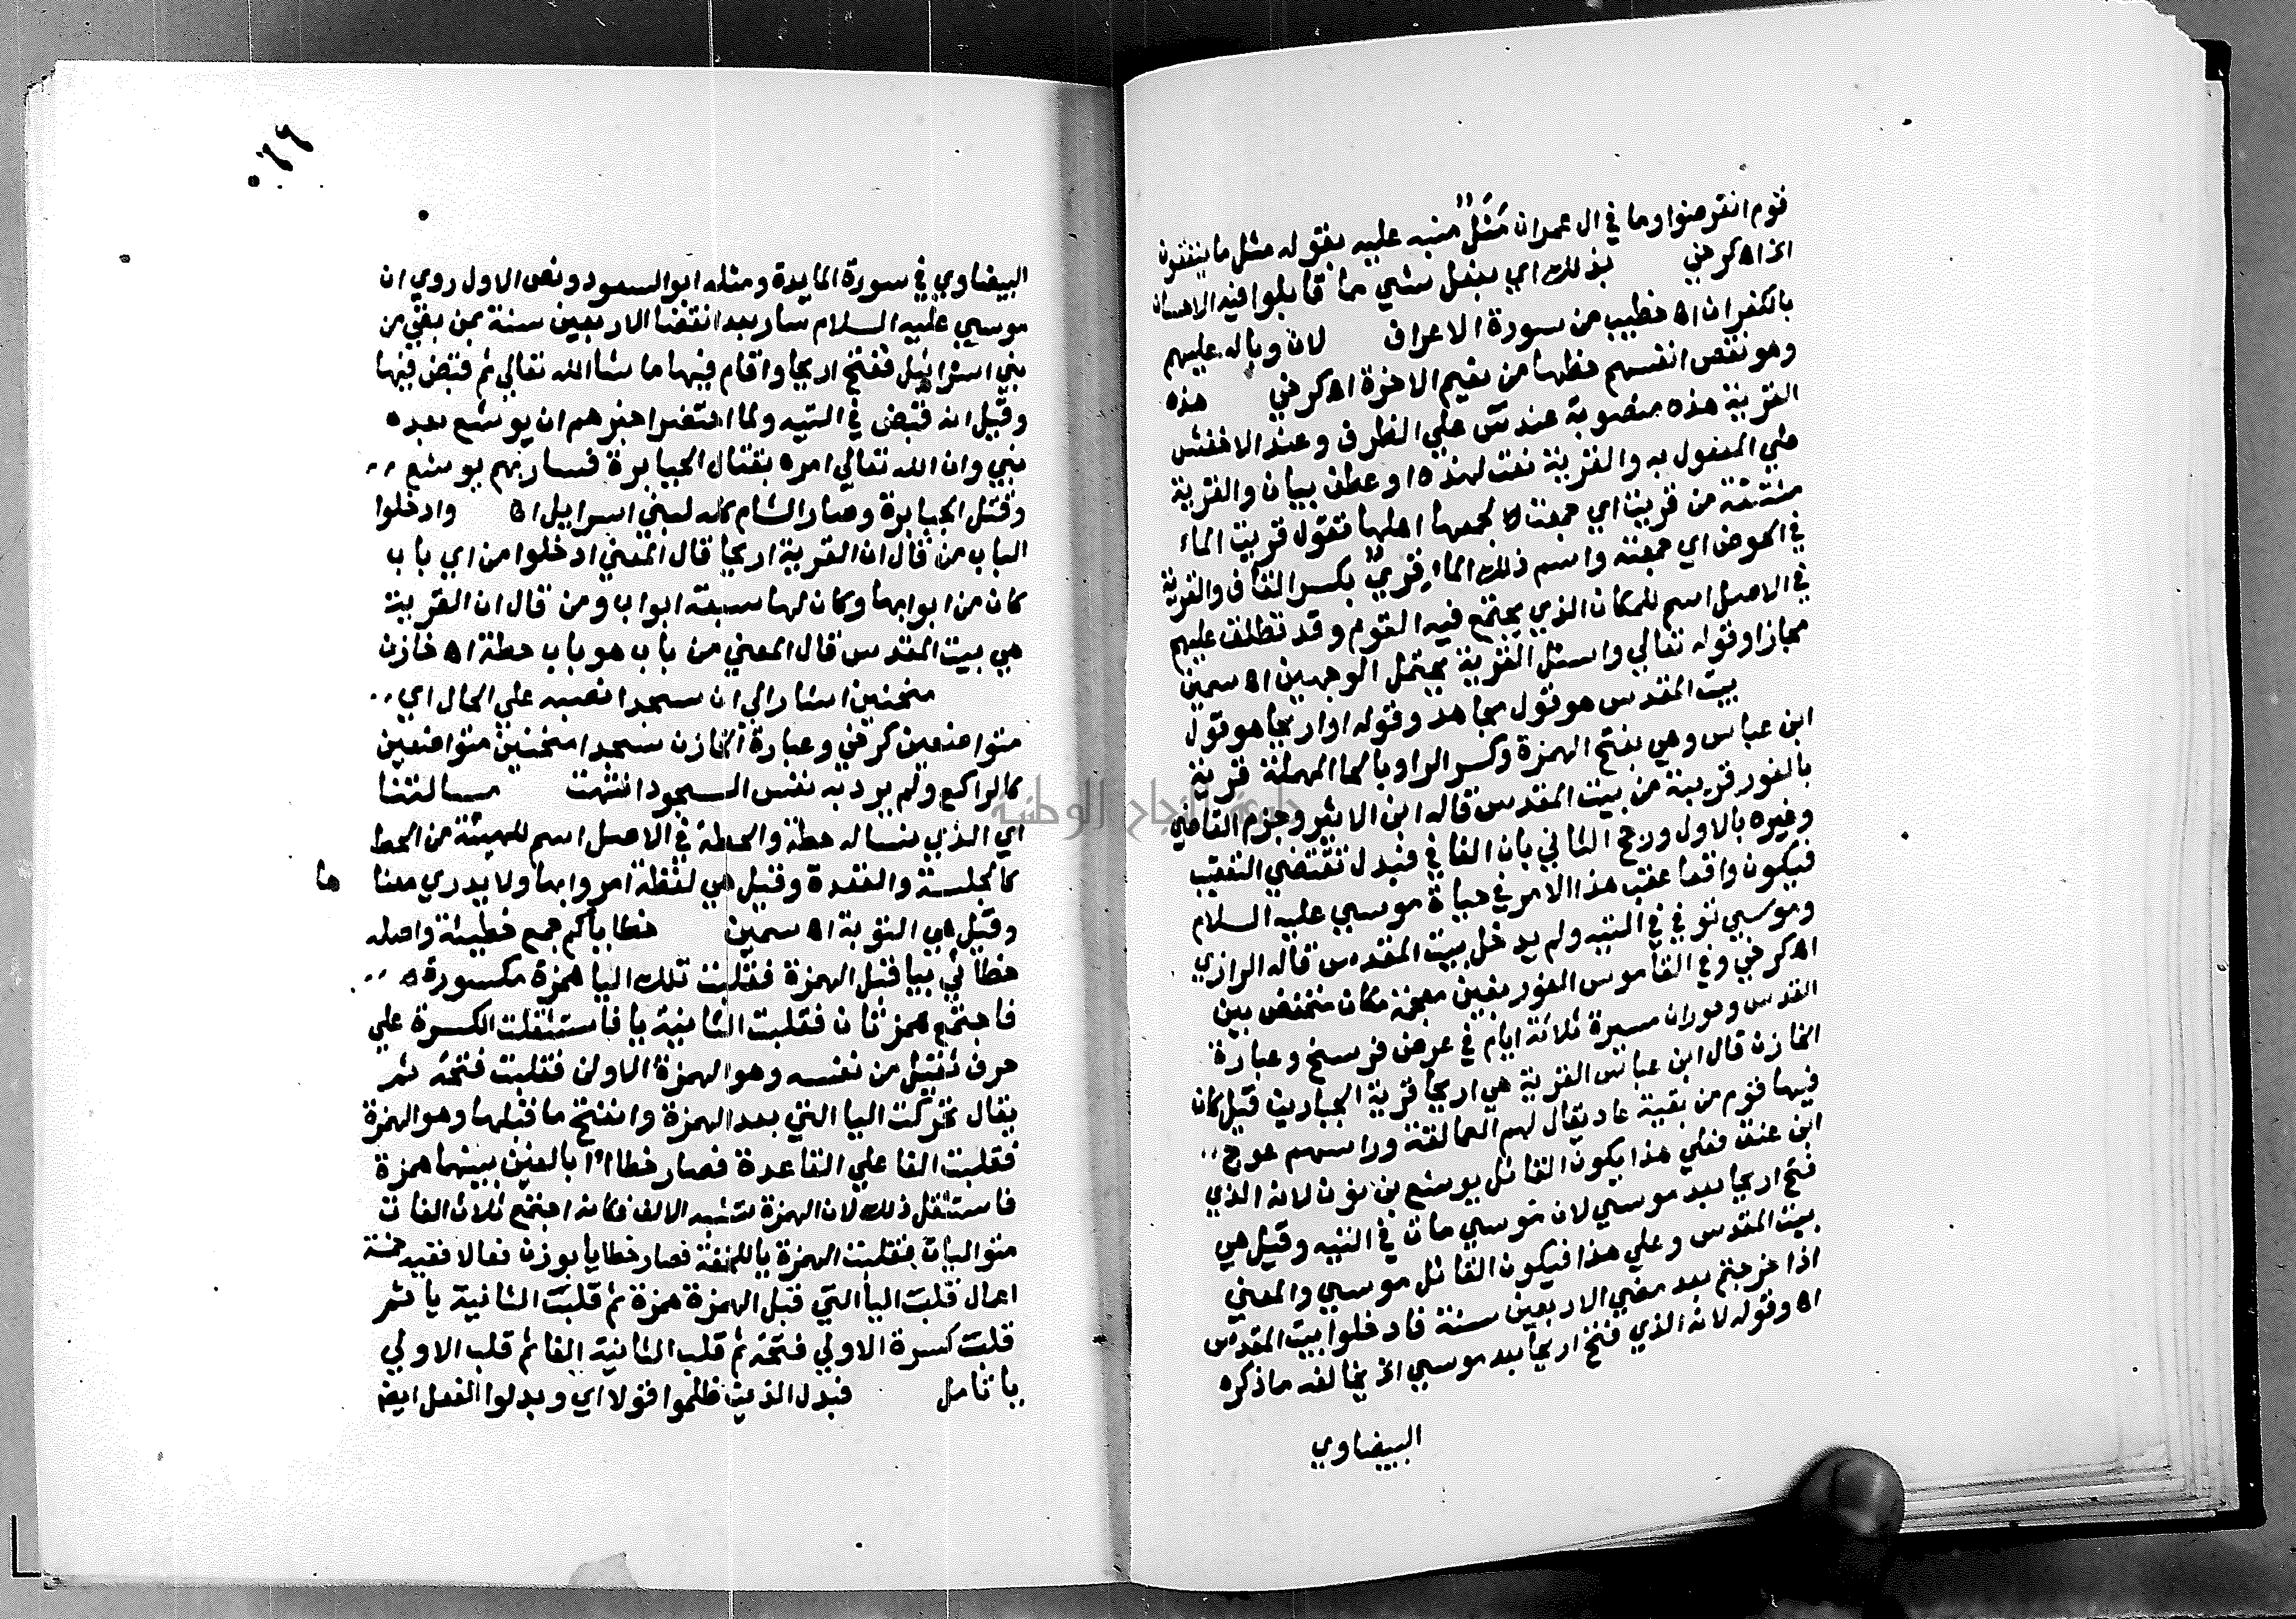 قوم انقرضوا وما في ال عمران مَثَلٌ منبه عليه بقوله مثل ما ينفقون
الخ اه كرخي بذلك اي بفعل شي مما قابلوا فيه الاحسان
بالكفران اه خطيب من سورة الاعراف لان وباله عليهم
وهو نقص انفسهم حظها من نعيم الاخرة اه كرخي هذه
القرية هذه منصوبة عند س علي الظرف وعند الاخفش
علي المفعول به والقرية نعت لهذه او عطف بيان والقرية
مشتقة من قريت اي جمعت لجمعها اهلها تقول قريت الماء
في الحوض اي جمعته واسم ذلك الماء قِريٌ بكسر القاف والقرية
في الاصل اسم للمكان الذي يجتمع فيه القوم وقد تطلق عليهم
مجازا وقوله تعالي واسئل القرية يحتمل الوجهين اه سمين
بيت المقدس هو قول مجاهد وقوله او اريحا هو قول
ابن عباس وهي بفتح الهمزة وكسر الرا وبالحا المهملة قرية
بالغور قريبة من بيت المقدس قاله ابن الاثير وجزم القاضي
وغيره بالاول ورجح الثاني بان الفا في فبدل تقتضي التعقيب
فيكون واقعا عقب هذا الامر في حياة موسي عليه السلام
وموسي توفي في التيه ولم يدخل بيت المقدس قاله الرازي
اه كرخي وفي القاموس الغور بغين معجمة مكان منخفض بين
القدس وحوران مسيرة ثلاثة ايام في عرض فرسخ وعبارة
الخازن قال ابن عباس القرية هي اريحا قرية الجبارين قيل كان
فيها قوم من بقية عاد يقال لهم العمالقة وراسهم عوج
ابن عنق فعلي هذا يكون القائل يوشع بن نون لانه الذي
فتح اريحا بعد موسي لان موسي مات في التيه وقيل هي
بيت المقدس وعلي هذا فيكون القائل موسي والمعني
اذا خرجتم بعد مضي الاربعين سنة فادخلوا بيت المقدس
اه وقوله لانه الذي فتح اريحا بعد موسي الخ يخالفه ما ذكره
البيضاوي
٠٦٦
البيضاوي في سورة المايدة ومثله ابو السعود ونص الاول روي ان
موسي عليه السلام سار بعد انقضا الاربعين سنة بمن بقي من
بني اسرائيل ففتح اريحا واقام فيها ما شا الله تعالي ثم قبض فيها
وقيل انه قبض في التيه ولما احتضر اخبرهم ان يوشع بعده
نبي وان الله تعالي امره بقتال الجبابرة فسار بهم يوشع
وقتل الجبابرة وصار الشام كله لبني اسراييل اه وادخلوا
الباب من قال ان القرية اريحا قال المعني ادخلوا من اي باب
كان من ابوابها وكان لها سبعة ابواب ومن قال ان القرية
هي بيت المقدس قال المعني من باب هو باب حطة اه خازن
منحنين اشار الي ان سجدا نصبه علي الحال اي
متواضعين كرخي وعبارة الخازن سجدا منحنين متواضعين
كالراكع ولم يرد به نفس السجود انتهت مسالتنا
اي الذي نساله حطة والحطة في الاصل اسم للهيئة من الحط
كالجلسة والقعدة وقيل هي لفظة امروا بها ولا يدري معنا ها
وقيل هي التوبة اه سمين خطاياكم جمع خطيئة واصله
خطائي بيا قبل الهمزة فقلبت تلك اليا همزة مكسورة ه
فاجتمع همزتان فقلبت الثانية يا فاستثقلت الكسرة علي
حرف ثقيل من نفسه وهو الهمزة الاولي فقلبت فتحة ثم
يقال تحركت اليا التي بعد الهمزة وانفتح ما قبلها وهو الهمزة
فقلبت الفا علي القاعدة فصار خطاءا بالفين بينهما همزة
فاستثقل ذلك لان الهمزة تشبه الالف فكانه اجتمع ثلاث الفات
متواليات فقلبت الهمزة يا للخفة فصار خطايا بوزن فعالا ففيه خمسة
اعمال قلبت اليا التي قبل الهمزة همزة ثم قلبت الثانية يا ثم
قلبت كسرة الاولي فتحة ثم قلب الثانية الفا ثم قلب الاولي
يا تامل فبدل الذين ظلموا قولا اي وبدلوا الفعل ايضا
جامعة النجاح الوطنية